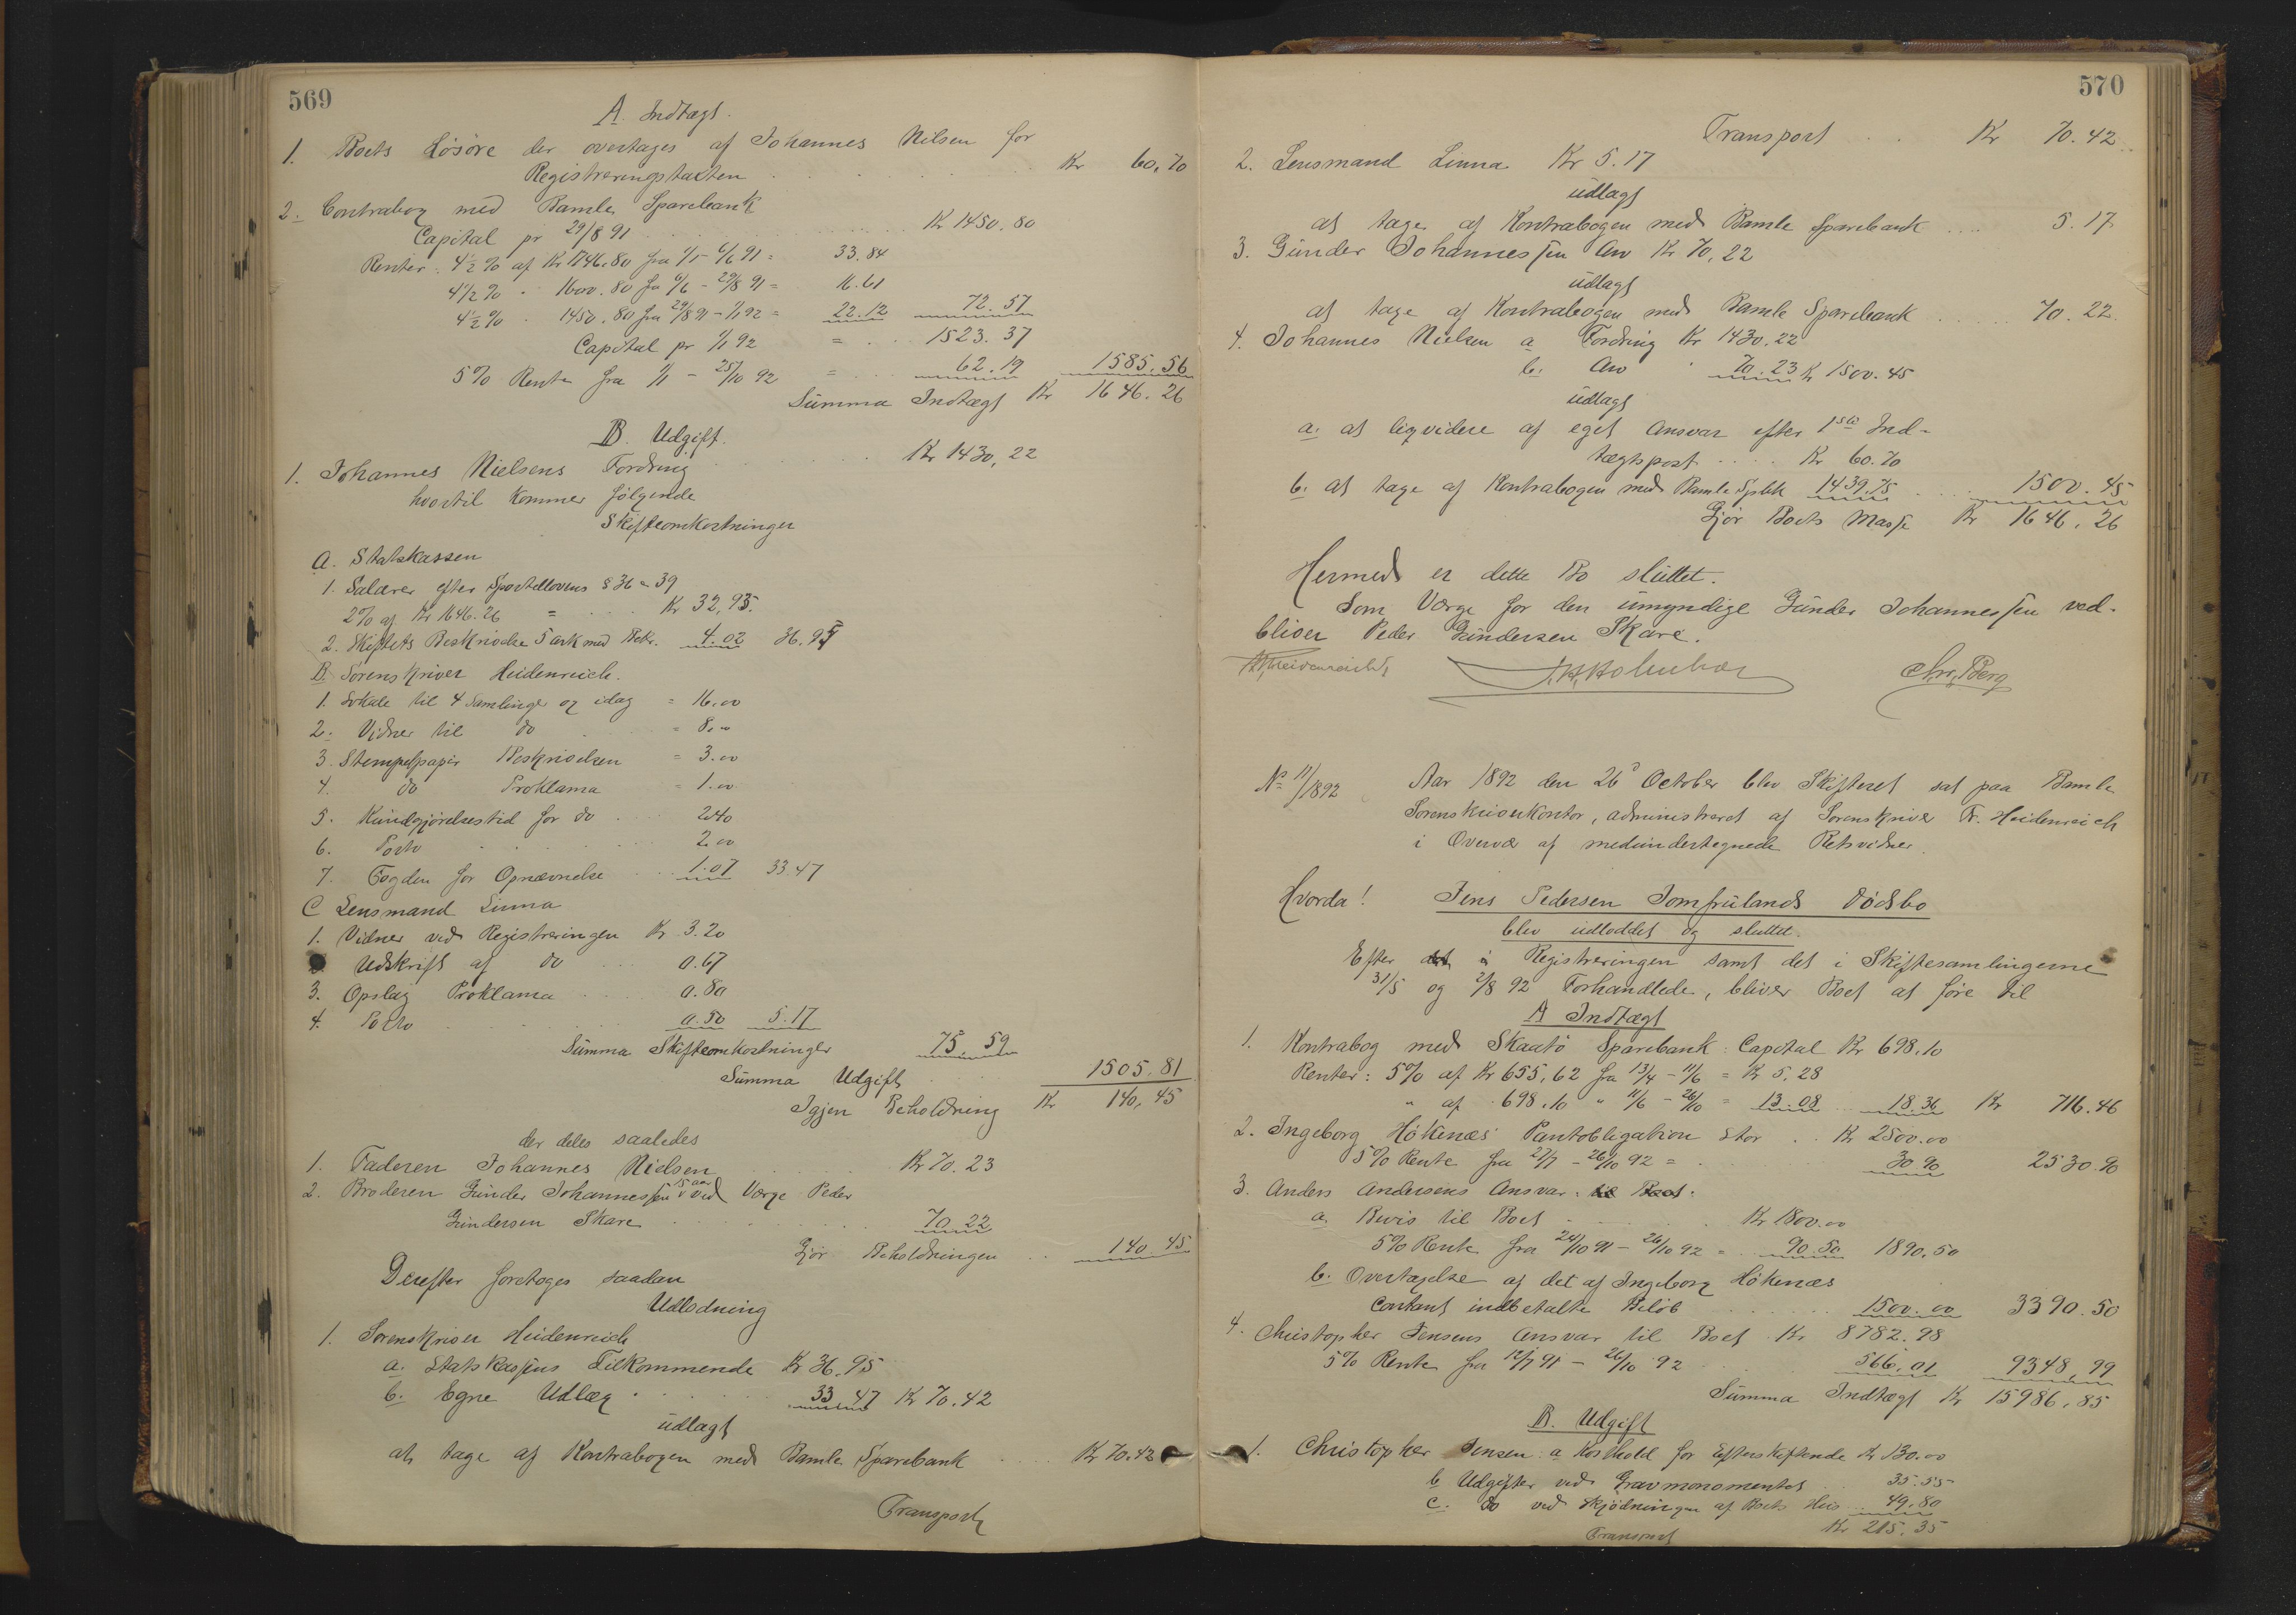 569
A. Indtægt.
1. Boets Løsøre der overtages af Johannes Nilsen for
Registreringstaxten . . . Kr 60,70
2. Contrabog med Bamle Sparebank
Capital pr 29/8 91 . . . Kr 1450.80
Renter: 4½ % af Kr 1746.80 fra 1/1 - 6/6 91 = 33.84
4½ % " 1600.80 fra 6/6 - 29/8 91 = 16.61
4½ % " 1450.80 fra 29/8 91 - 1/1 92 = 22.12 72.57
Capital pr 1/1 92 = . . 1523.37
5 % Rente fra 1/1 - 25/10 92 = . . 62.19 1585.56
Summa Indtægt Kr 1646.26
B. Udgift.
1. Johannes Nielsens Fordring . . . Kr 1430,22
hvortil kommer følgende
Skifteomkostninger
A. Statskassen
1. Salærer efter Sportellovens § 36 & 39
2 % af Kr 1646.26 = . . . Kr 32,93.
2. Skiftets Beskrivelse 5 ark med Bekr. 4.02 36.95
B. Sorenskriver Heidenreich.
1. Lokale til 4 Samlinger og idag = 16.00
2. Vidner til do = 8.00
3. Stempelpapir Beskrivelsen = 3.00
4. do Proklama = 1.00
5. Kundgjørelsestid for do . . 2.40
6. Porto . . . 2.00
7. Fogden for Opnævnelse . . 1.07 33.47
C Lensmand Linna
1. Vidner ved Registreringen Kr 3.20
Udskrift af do . . . 0.67
3. Opslag Proklama . . . 0.80
4. Porto . . . 0.50 5.17
Summa Skifteomkostninger 75.59
Summa Udgift . . . 1505.81
Igjen Beholdning Kr 140,45
der deles saaledes
1. Faderen Johannes Nielsen . . . Kr 70.23
2. Broderen Gunder Johannessen 15 aar ved Værge Peder
Gundersen Skare . . . 70.22
Gjør Beholdningen . . 140 45
Derefter foretoges saadan
Udlodning
1. Sorenskriver Heidenreich
a. Statskassens Tilkommende Kr 36.95
b. Egne Udlæg . . . 33.47 Kr 70.42
udlagt
at tage af Kontrabogen med Bamle Sparebank . . . Kr 70.42
Transport
570
Transport . . Kr 70.42
2. Lensmand Linna Kr 5.17
udlagt
at tage af Kontrabogen med Bamle Sparebank . . . 5.17
3. Gunder Johannessen Arv Kr 70,22
udlagt
at tage af Kontrabogen med Bamle Sparebank . . . 70.22
4. Johannes Nielsen a Fordring Kr 1430.22
b. Arv " 70.23 Kr 1500.45
udlagt
a. at liqvidere af eget Ansvar efter 1ste Ind-
tægtspost . . . Kr 60.70
b. at tage af Kontrabogen med Bamle Spbk 1439.75 . . . 1500.45
Gjør Boets Masse Kr 1646.26
Hermed er dette Bo sluttet.
Som Værge for den umyndige Gunder Johannessen ved-
bliver Peder Gundersen Skare.
Heidenreich Chr. Berg
No 11/1892 Aar 1892 den 26d October blev Skifteret sat paa Bamle
Sorenskriverkontor, administreret af Sorenskriver Fr. Heidenreich
i Overvær af medundertegnede Retsvidner.
Hvorda! Jens Pedersen Jomfrulands Dødsbo
blev udloddet og sluttet.
Efter det i Registreringen samt det i Skiftesamlingerne
31/5 og 2/8 92 Forhandlede, bliver Boet at føre til
A Indtægt
1. Kontrabog med Skaatø Sparebank: Capital Kr 698.10
Renter: 5 % af Kr 655,62 fra 13/4 - 11/6 = Kr 5.28
" af 698.10 " 11/6 - 26/10 = 13.08 18.36 Kr 716.46
2. Ingeborg Høkenæs Pantobligation stor . . Kr 2500.00
5 % Rente fra 27/7 - 26/10 92 = . . 30.90 2530.90
3. Anders Andersens Ansvar. til Boet.
a. Bevis til Boet . . . Kr 1800.00
5 % Rente fra 24/10 91 - 26/10 92 = . . 90.50 1890.50
b. Overtagelse af det af Ingeborg Høkenæs
contant indbetalte Beløb . . . 1500.00 3390.50
4. Christopher Jensens Ansvar til Boet Kr 8782.98
5 % Rente fra 12/7 91 - 26/10 92 . . . 566.01 9348,99
Summa Indtægt Kr 15986.85
B. Udgift
1. Christopher Jensen: a Kosthold for Efterskiftende Kr 130.00
b Udgifter ved Gravmonomentet . . 35.55
c. do ved skjødningen af Boets Hus . . 49.80
Transport Kr 215.35